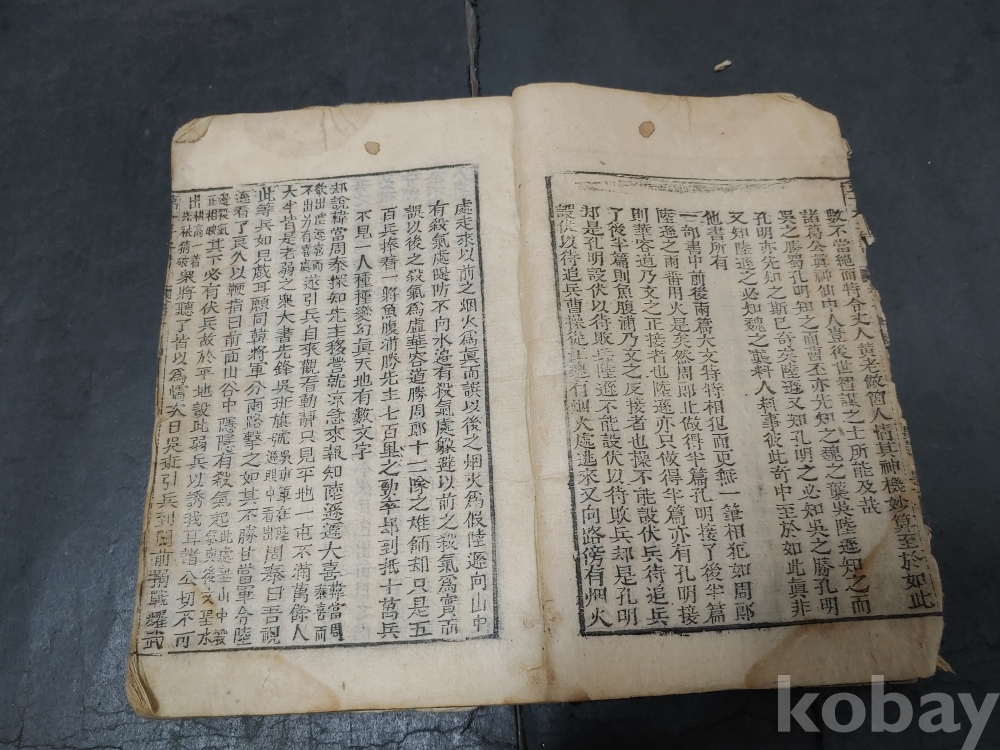 數不當絕而特令丈人黃老做個人情其神機妙算至於如此
諸葛公眞神仙中人豈後世智謀之士所能及哉
吳之勝蜀孔明知之而曹丕亦先知之魏之襲吳陸遜知之而
孔明亦先知之斯已奇矣陸遜又知孔明之必知吳之勝孔明
又知陸遜之必知魏之襲料人料事彼此奇中至於如此眞非
他書所有
一部書中前後兩篇大文特特相犯而更無一筆相犯如周郎
陸遜之兩番用火是矣然周郎止做得半篇孔明接了後半篇
則華容道乃文之正接者也陸遜亦只做得半篇亦有孔明接
了後半篇則魚腹浦乃文之反接者也操不能設伏兵待追兵
却是孔明設伏以待敗兵陸遜不能設伏以待敗兵却是孔明
設伏以待追兵曹操從江邊有烟火處逃來又向路傍有烟火
處走來以前之烟火爲眞而誤以後之烟火爲假陸遜向山中
有殺氣處隄防不向水邊有殺氣處躱避以前之殺氣爲實而
誤以後之殺氣爲虛華容道勝周郎十二隊之雄師却只是五
百兵捧着一將魚腹浦勝先主七百里之勁卒却到抵十萬兵
不見一人種種變幻眞天地有數文字
却說韓當周泰探知先主移營就凉急來報知陸遜遜大喜韓當周泰喜而
欲出陸遜喜而不出方有喜處遂引兵自來觀看動靜只見平地一屯不滿萬餘人
大半皆是老弱之衆大書先鋒吳班旗號吳班軍在陸遜眼中看出周泰曰吾視
此等兵如兒戲耳願同韓將軍分兩路擊之如其不勝甘當軍令陸
遜看了良久以鞭指曰前面山谷中隱隱有殺氣起此處是山中殺氣後文是水
邊殺氣正相映其下必有伏兵故於平地設此弱兵以誘我耳諸公切不可
出棋高一着先被猜破衆將聽了皆以爲懦次日吳班引兵到關前搦戰耀武
kobay